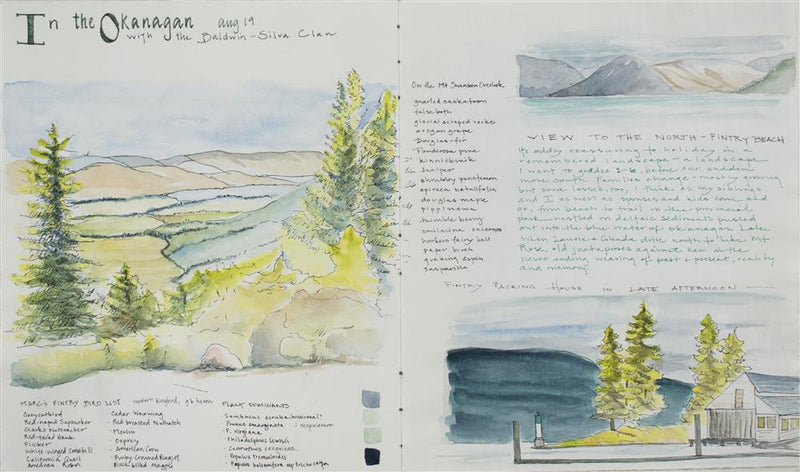 In the Okanagan aug 19
with the Baldwin-Silva Clan
MARC'S FINTRY BIRD LIST
Gray catbird
Red-naped Sapsucker
Clarks Nutcracker
Red-tailed Hawk
Flicker
White-winged Crossbill
California Quail
American Robin
- Cedar Waxwing
- Red breasted Nuthatch
- Merlin
- Osprey
- American Crow
- Ruby Crowned Kinglet
- Black billed magpie
PLANT DOMINANTS
- Prunus emarginata
- P. virginiana
- Philadelphus lewisii
- Populus tremuloides
On the Mt Swanson Overlook
gnarled saskatoon
falsebox
glacial scraped rocks
oregon grape
Douglas-fir
Ponderosa pine
kinnikinnik
juniper
shrubby penstemon
spirea betulifolia
douglas maple
pippissewa
thimbleberry
smilacina racemosa
hookers fairy bell
paper birch
quaking aspen
sasparilla
VIEW TO THE NORTH - FINTRY BEACH
Its oddly reassuring to holiday in a
remembered landscape - a landscape
I went to grades 1-6, before our sudden
move north. Families change - most growing
but some losses, too, I think, as my siblings
and I as well as spouses and kids come and
go from beach to trail in this provincial
park nestled on deltaic sediments pushed
out into the blue water of Okanagan Lake.
When Laura & Glenda drive north to take Mt
Rose old waterpower against rock, with the
never ending weaving of past & present, reality
and memory.
FINTRY PACKING HOUSE in LATE AFTERNOON